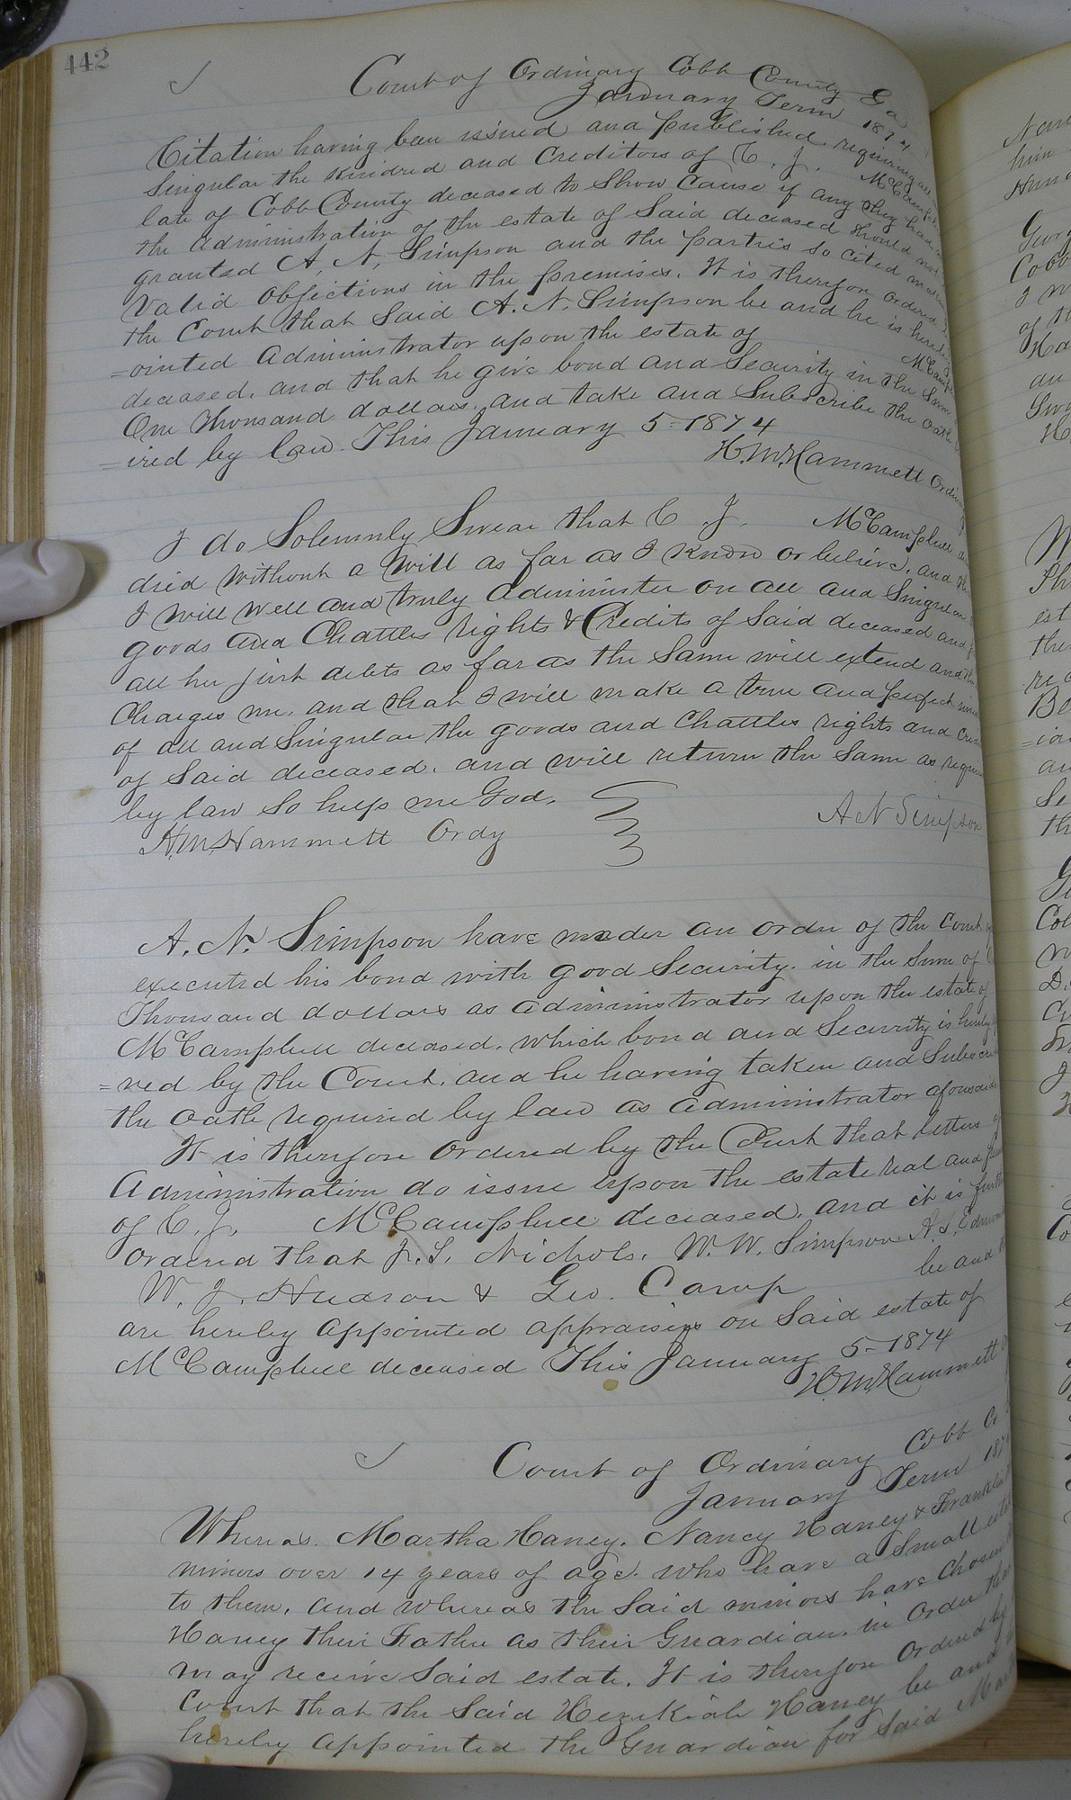 442
Court of Ordinary Cobb County Ga
January Term 1874
Citation having been issued and published requiring all
Singular the kindred and Creditors of C. J. McCamp
late of Cobb County deceased to Show Cause if any they have
the administration of the estate of Said deceased should not
granted A. N. Simpson and the parties so cited
Valid objections in the premises. It is therefore ordered
the Court that Said A. N. Simpson be and he is hereby
=ointed administrator upon the estate of McCamp
deceased, and that he give bond and Security in the Sum
One Thousand dollars, and take and Subscribe the oath
=ired by law. This January 5-1874
H.M. Hammett Ordin
I do Solemnly Swear that C. J. McCampbell
died without a Will as far as I know or believe, and th
I will well and truly administer on all and Singular
goods and Chattles rights & Credits of Said deceased and
all her just debts as far as the Same will extend and
Charges me, and that I will make a true and perfect
of all and Singular the goods and Chattles rights and Cre
of Said deceased. and will return the Same as requi
by law So help me God.
H.M. Hammett Ordy A N Simpson
A. N. Simpson have under an order of the Court
executed his bond with good Security. in the Sum of
Thousand dollars as administrator upon the estate of
McCampbell deceased, which bond and Security is hereby
=ved by the Court, and he having taken and Subscri
the oath required by law as administrator aforesaid
It is therefore ordered by the Court that letters
Administration do issue upon the estate real and
of C. J. McCampbell deceased, and it is furth
ordered that J. S. Nichols, W. W. Simpson A. S. Edmon
W. J. Hudson & Geo. Camp be and
are hereby appointed appraisers on Said estate of
McCampbell deceased This January 5-1874
H M Hammett
Court of Ordinary Cobb Co
January Term 187
Whereas. Martha Haney. Nancy Haney & Franklin
minors over 14 years of age. who have a Small
to them, and whereas the Said minors have Chosen
Haney their Father as their Guardian, in Order that
may receive Said estate. It is therefore Ordered by
Court that the Said Hezekiah Haney be and
hereby appointed the Guardian for Said Mar